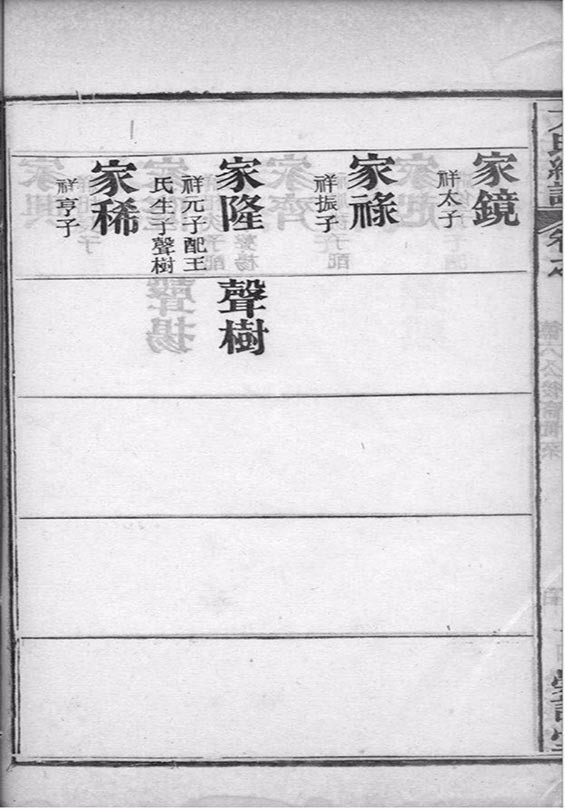 家鏡
祥太子
家祿
祥振子
家隆
祥元子配王
氏生子聲樹
聲樹
家稀
祥亨子